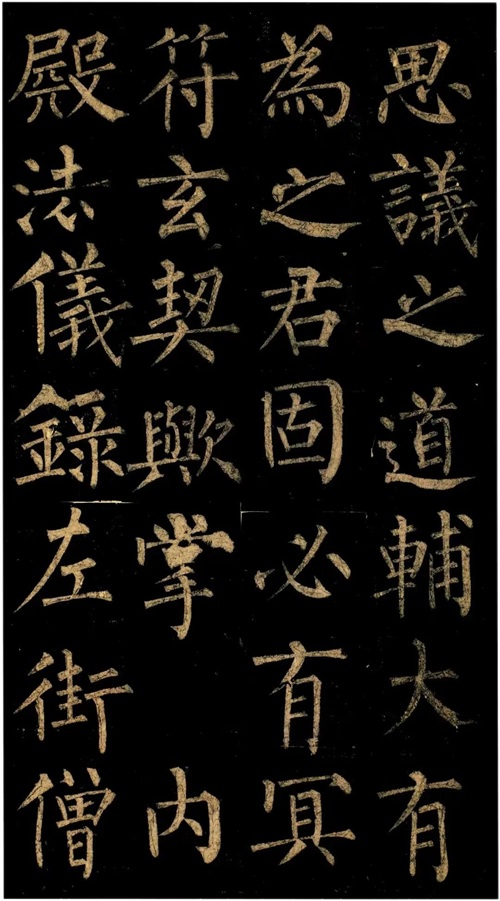 思議之道輔大有
為之君固必有冥
符玄契歟掌 内
殿法儀錄左街僧